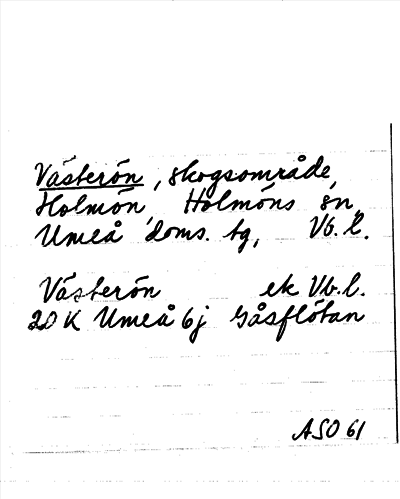 Västerön, skogsområde,
Holmön, Holmöns sn,
Umeå doms. tg, Vb. l.
Västerön ek Vb. l.
20 K Umeå 6j Gåsflötan
ASO 61